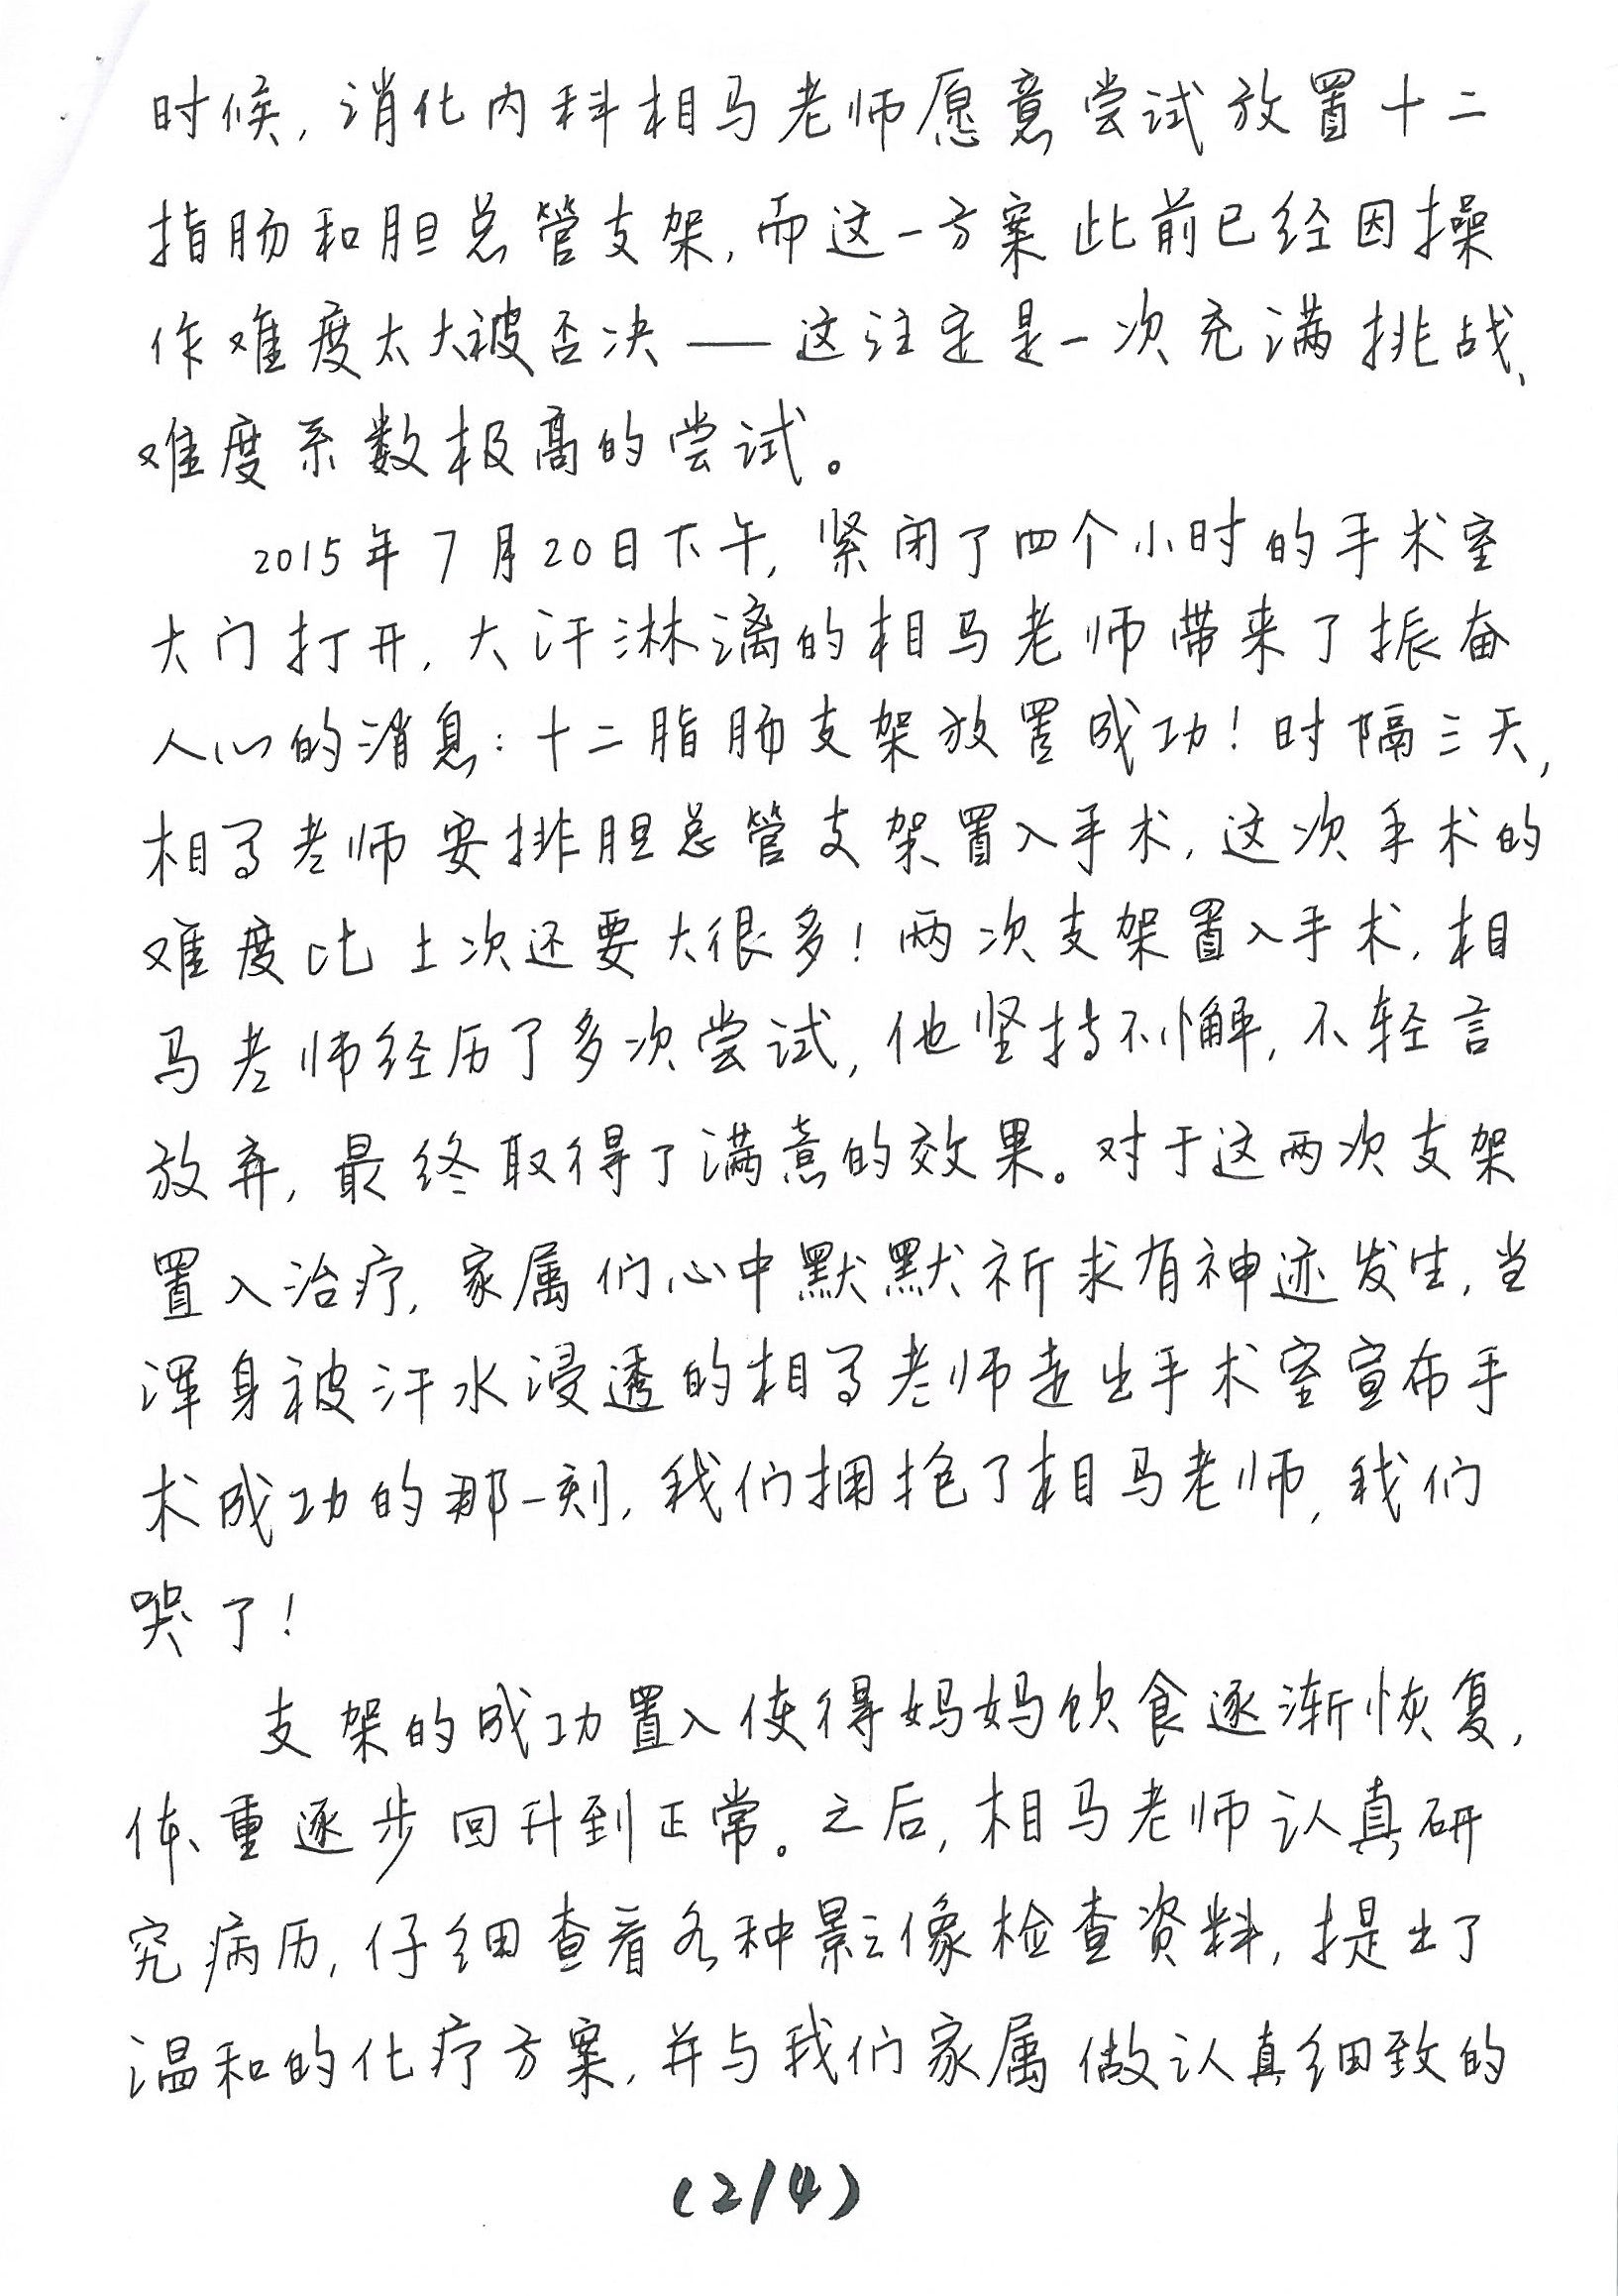 时候,消化内科相马老师愿意尝试放置十二
指肠和胆总管支架,而这一方案此前已经因操
作难度太大被否决——这注定是一次充满挑战、
难度系数极高的尝试。
2015年7月20日下午,紧闭了四个小时的手术室
大门打开,大汗淋漓的相马老师带来了振奋
人心的消息:十二脂肠支架放置成功!时隔三天,
相马老师安排胆总管支架置入手术,这次手术的
难度比上次还要大很多!两次支架置入手术,相
马老师经历了多次尝试,他坚持不懈,不轻言
放弃,最终取得了满意的效果。对于这两次支架
置入治疗,家属们心中默默祈求有神迹发生,当
浑身被汗水浸透的相马老师走出手术室宣布手
术成功的那一刻,我们拥抱了相马老师,我们
哭了!
支架的成功置入使得妈妈饮食逐渐恢复,
体重逐步回升到正常。之后,相马老师认真研
究病历,仔细查看各种影像检查资料,提出了
温和的化疗方案,并与我们家属做认真细致的
(2/4)